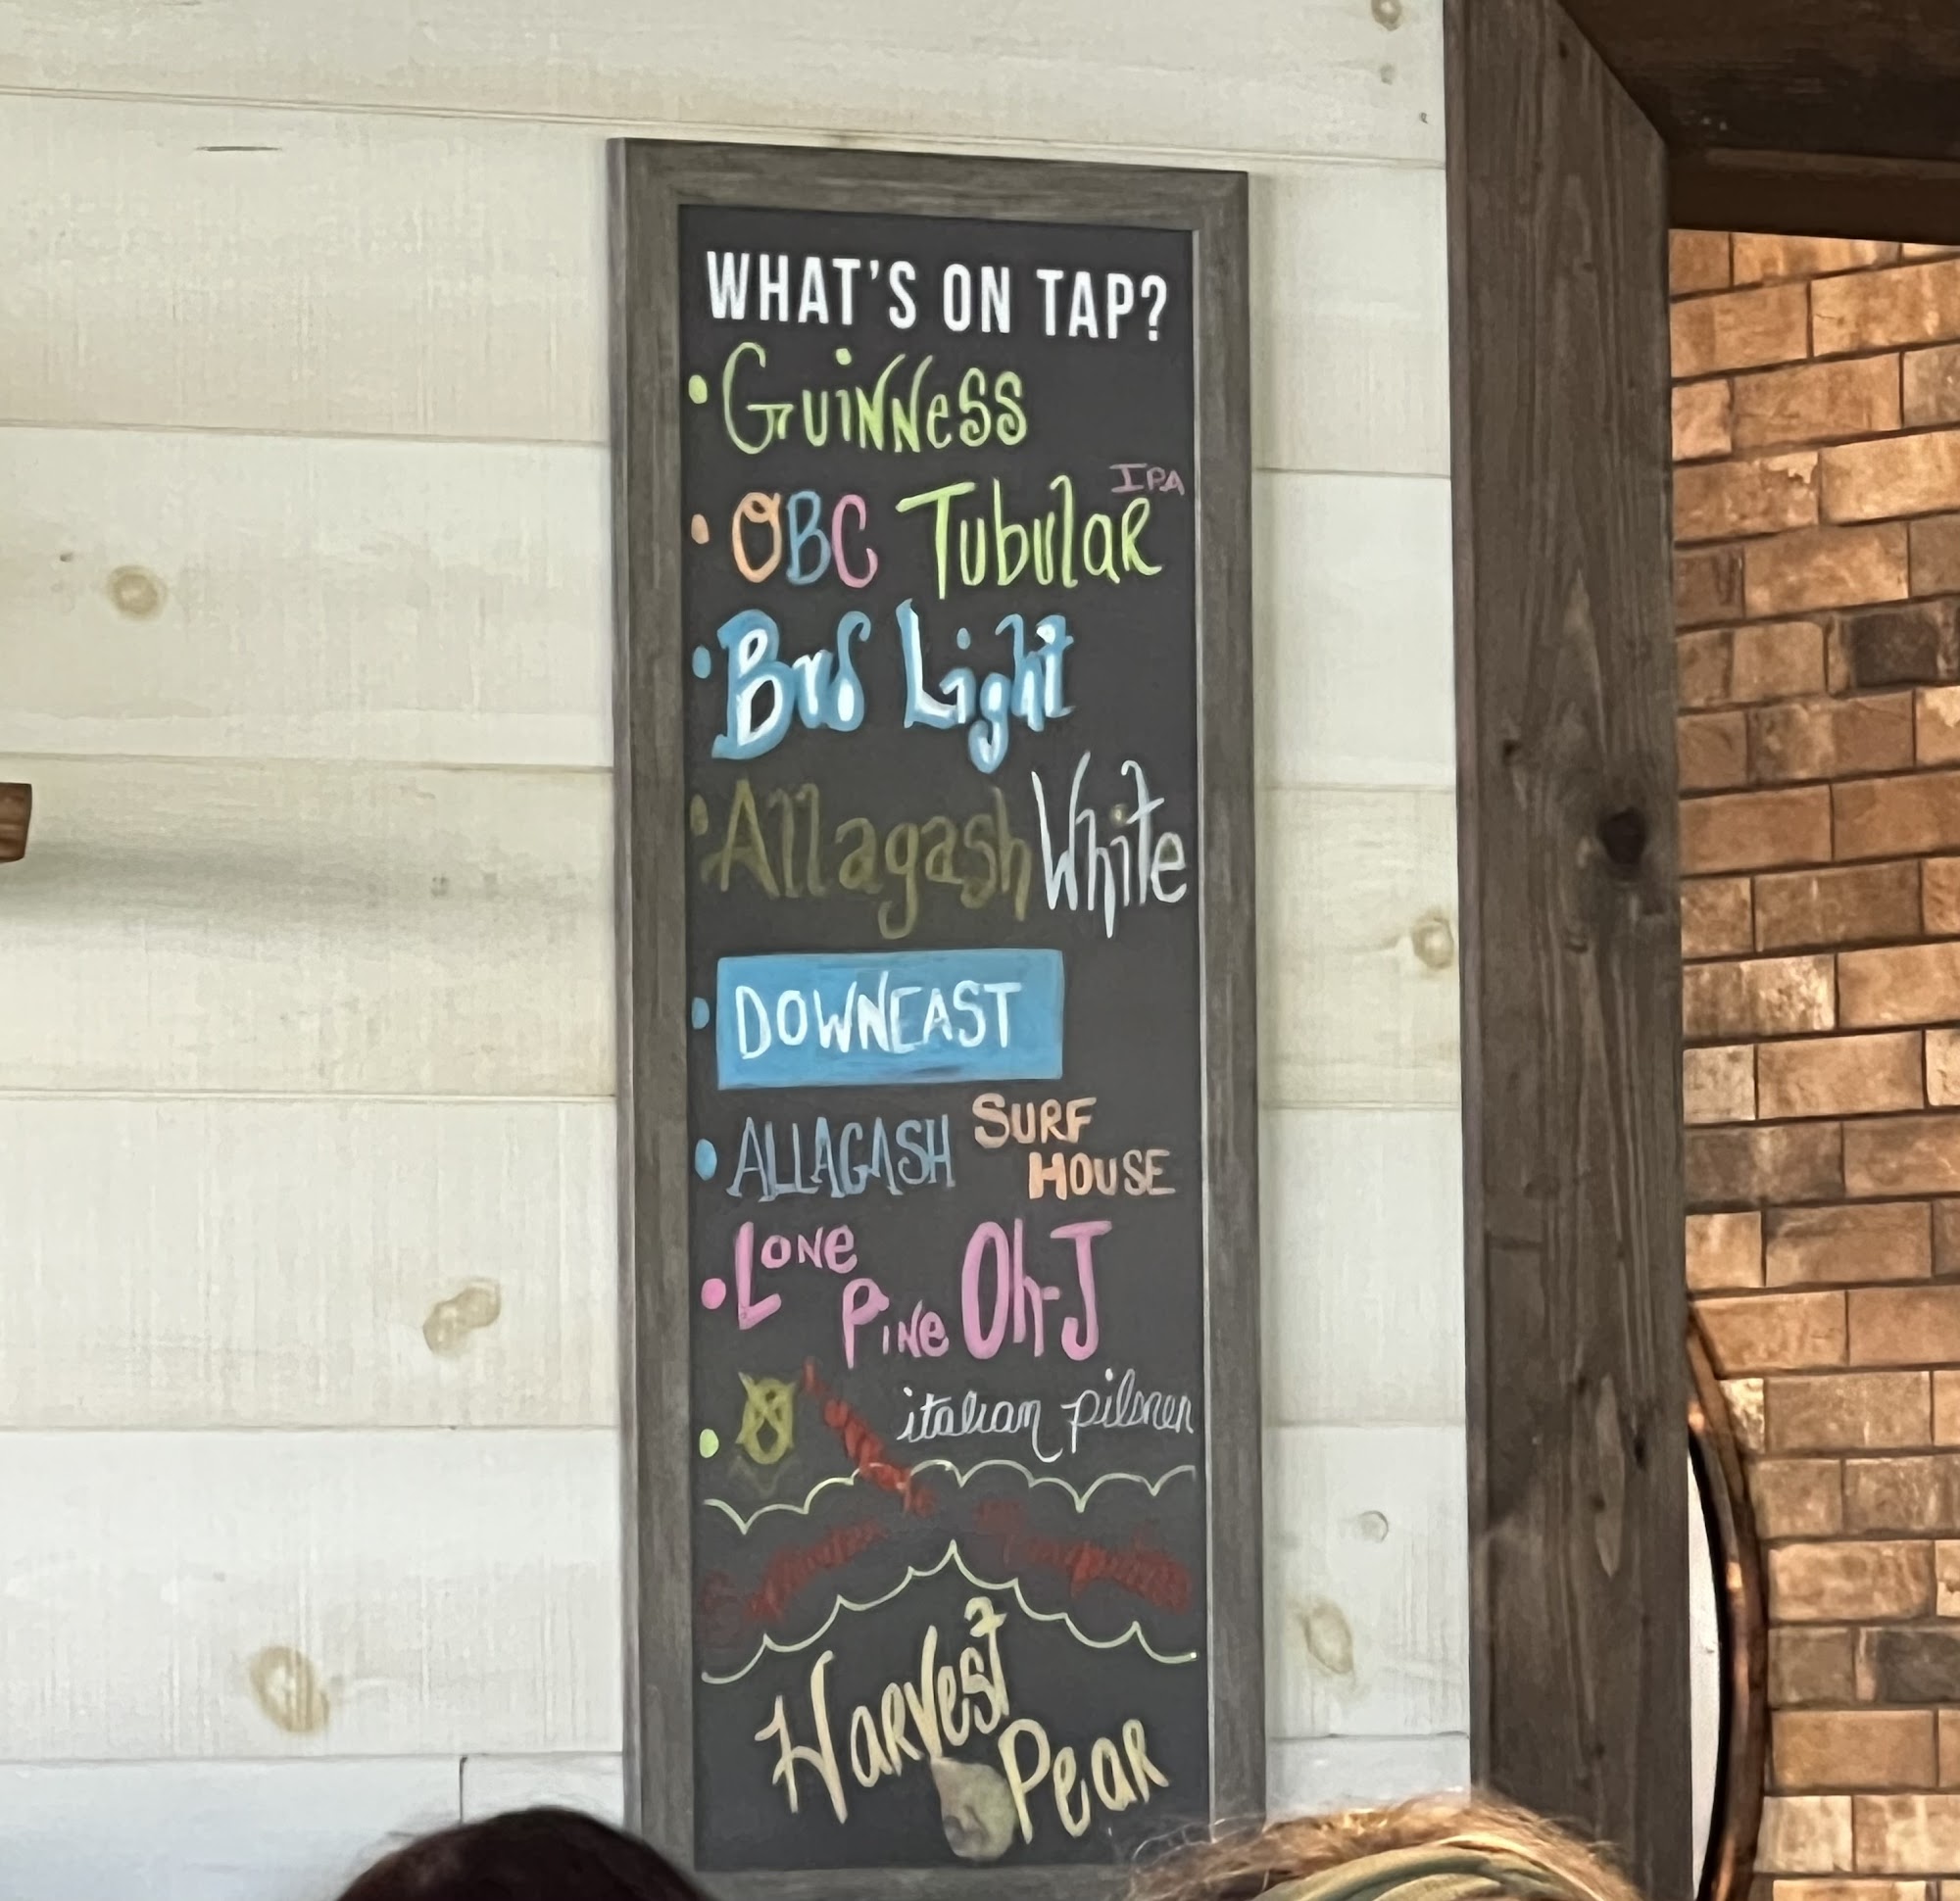 WHAT'S ON TAP?
• Guinness
• OBC Tubular IPA
• Bud Light
• Allagash White
• DOWNEAST
• ALLAGASH SURF HOUSE
• Lone Pine Oh-J
• italian pilsner
Harvest Pear